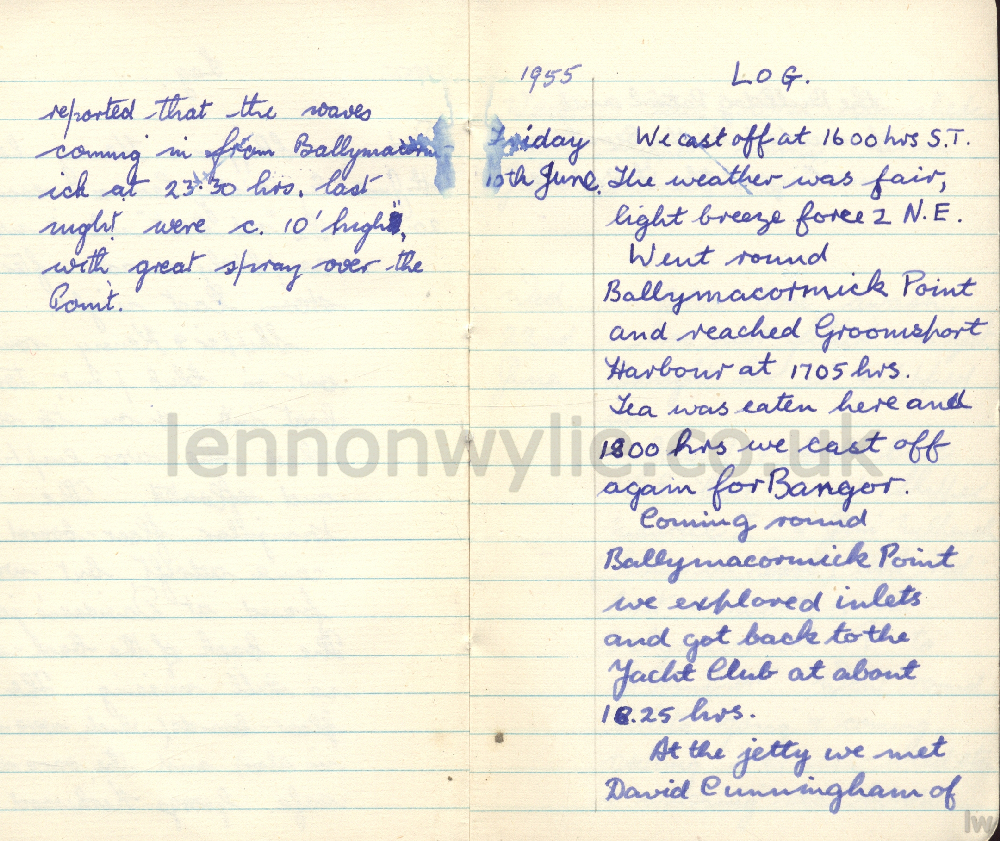 reported that the waves
coming in from Ballymacorm-
ick at 23.30 hrs. last
night were c. 10' high,
with great spray over the
Point.
1955 LOG.
Friday We cast off at 1600 hrs S.T.
10th June. The weather was fair,
light breeze force 2 N.E.
Went round
Ballymacormick Point
and reached Groomsport
Harbour at 1705 hrs.
Tea was eaten here and
1800 hrs we cast off
again for Bangor.
Coming round
Ballymacormick Point
we explored inlets
and got back to the
Yacht Club at about
18.25 hrs.
At the jetty we met
David Cunningham of
lennonwylie.co.uk
lw